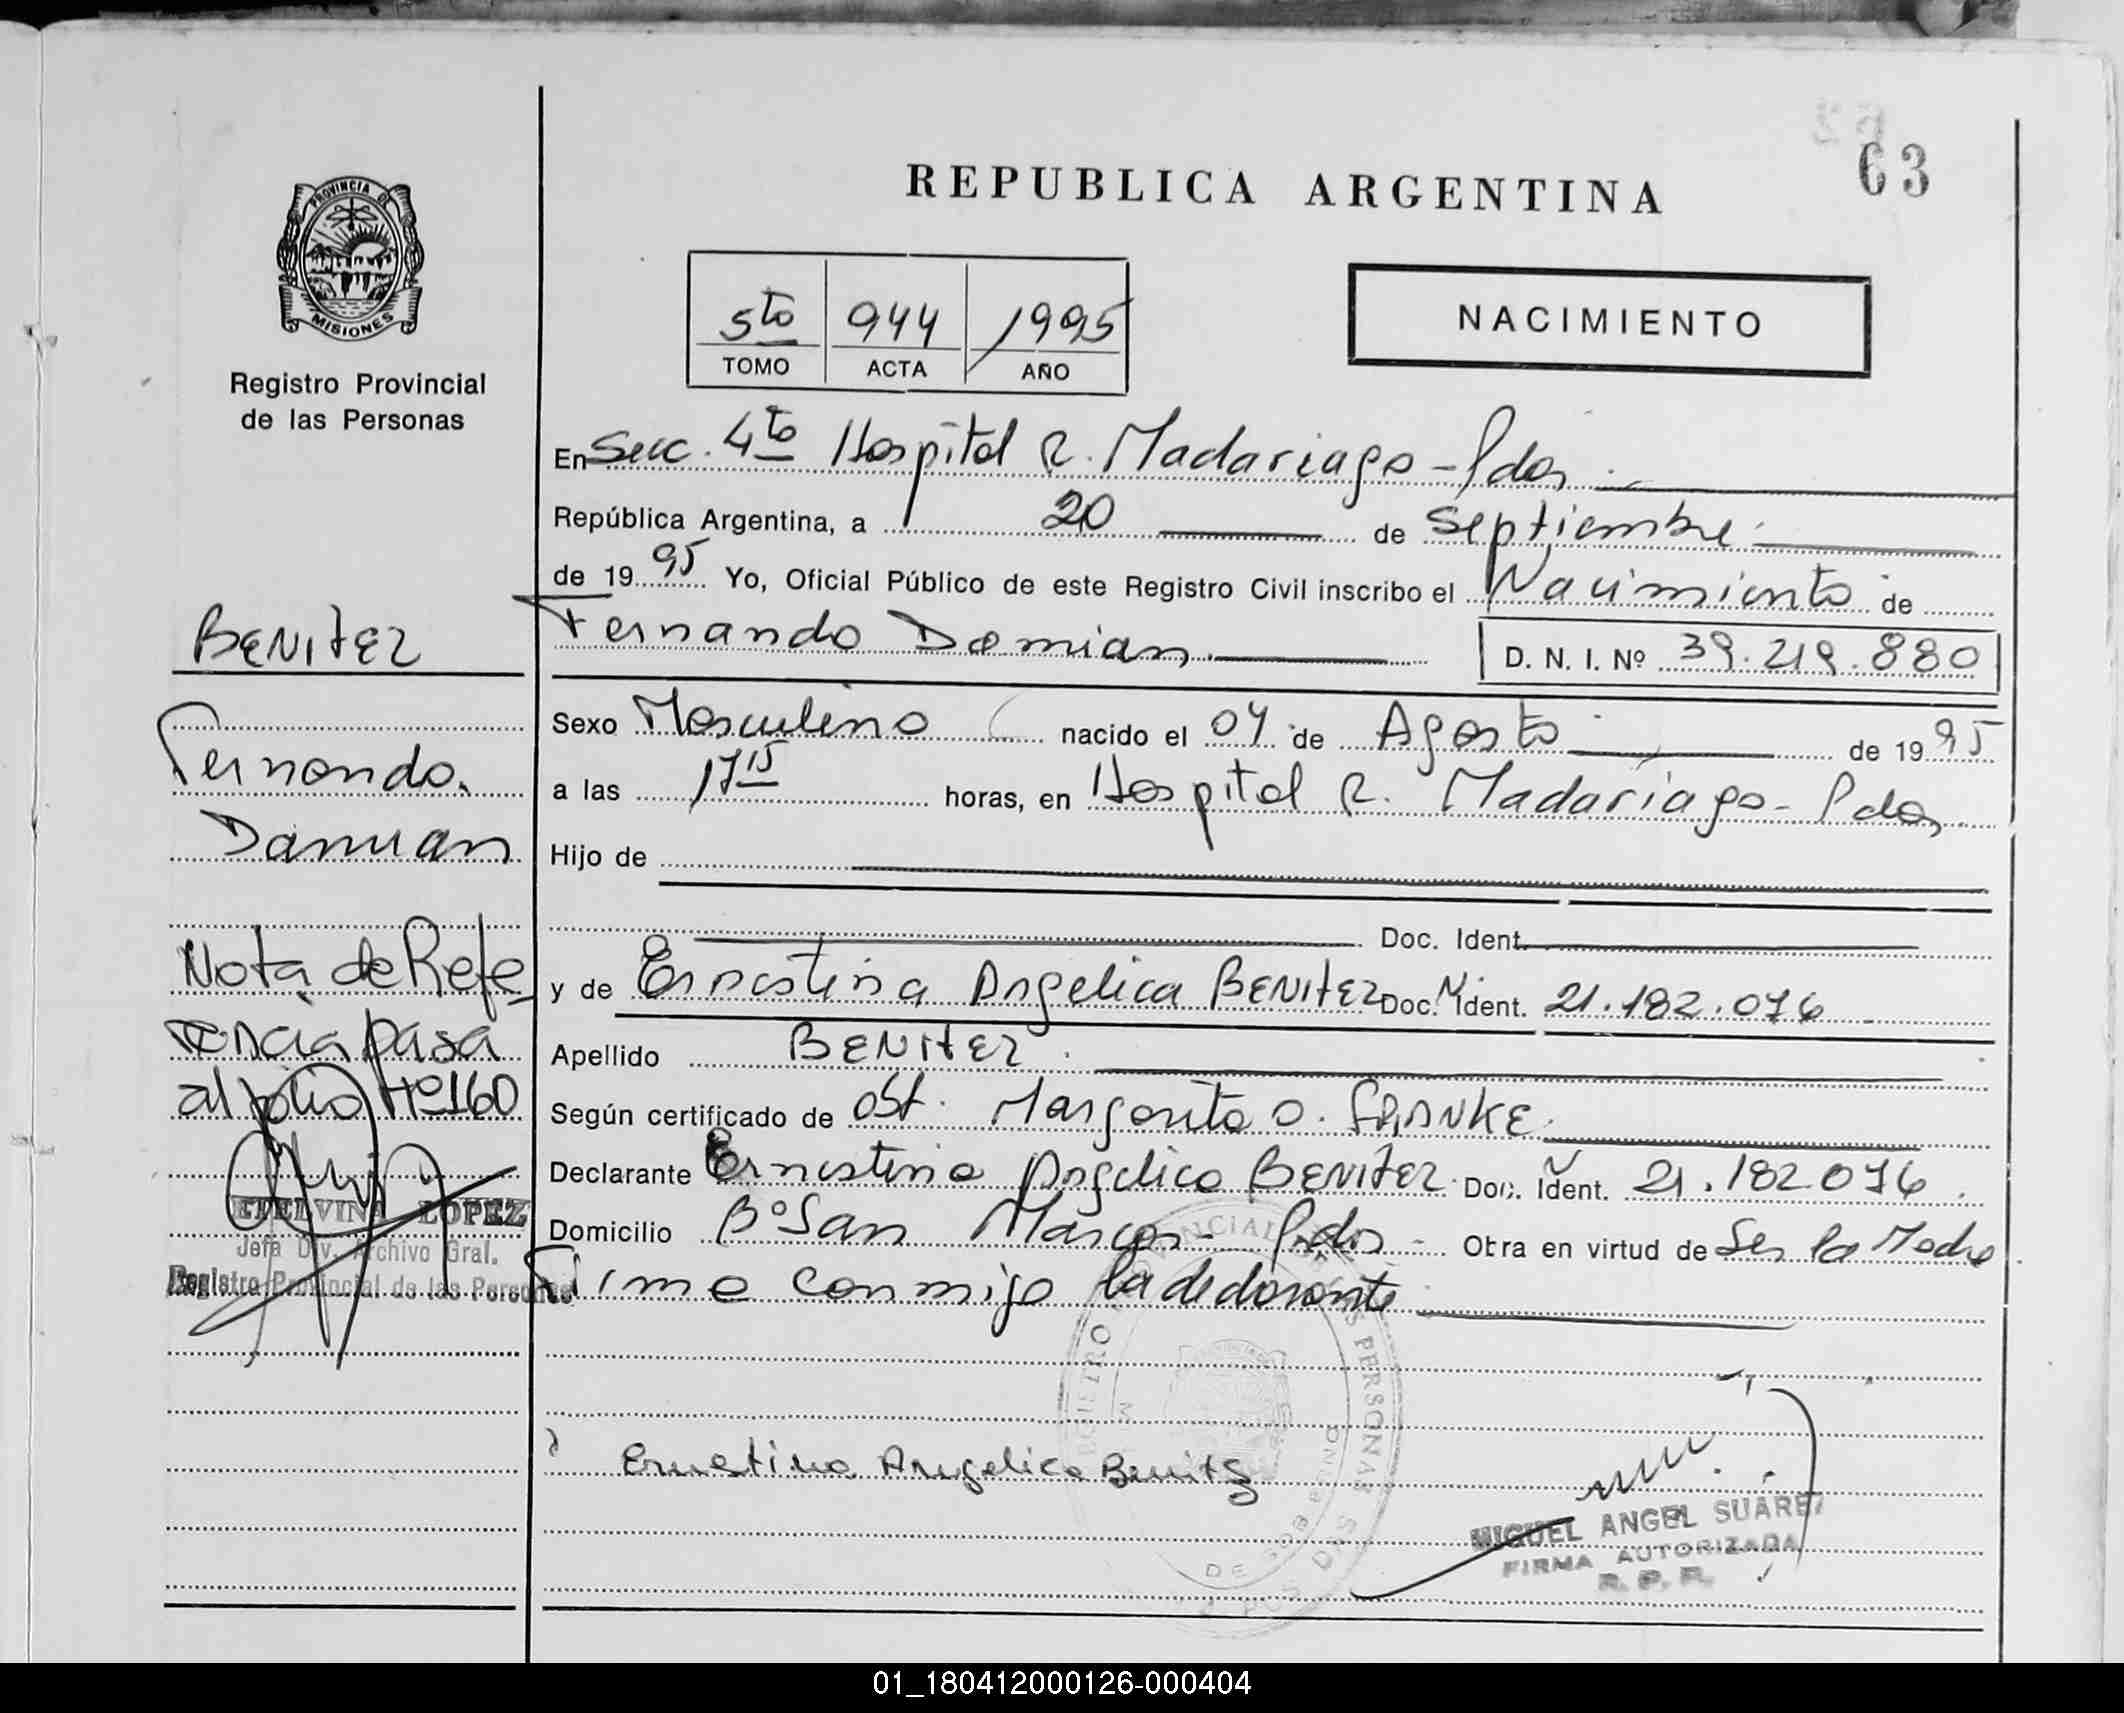 63
REPUBLICA ARGENTINA
PROVINCIA DE
MISIONES
Registro Provincial
de las Personas
5to 944 1995
TOMO ACTA AÑO
NACIMIENTO
En Secc. 4to Hospital R. Madariaga - Pdas.
República Argentina, a 20 de Septiembre
de 1995 Yo, Oficial Público de este Registro Civil inscribo el Nacimiento de
Fernando Damian D. N. I. Nº 39.219.880
BENITEZ
Fernando
Damian
Nota de Refe
rencia pasa
al folio Nº 160
ETELVINA LOPEZ
Jefa Div. Archivo Gral.
Registro Provincial de las Personas
Sexo Masculino nacido el 04 de Agosto de 1995
a las 17 15 horas, en Hospital R. Madariaga - Pdas.
Hijo de
Doc. Ident.
y de Ernestina Angelica BENITEZ Doc. Ident. 21.182.076
Apellido BENITEZ.
Según certificado de Obst. Margarita O. FRANKE.
Declarante Ernestina Angelica BENITEZ Doc. Ident. 21.182076.
Domicilio Bº San Marcos - Pdas - Otra en virtud de Ser la Madre
Firma conmigo la declarante
Ernestina Angelica Benitez
MIGUEL ANGEL SUAREZ
FIRMA AUTORIZADA
R. P. P.
01_180412000126-000404